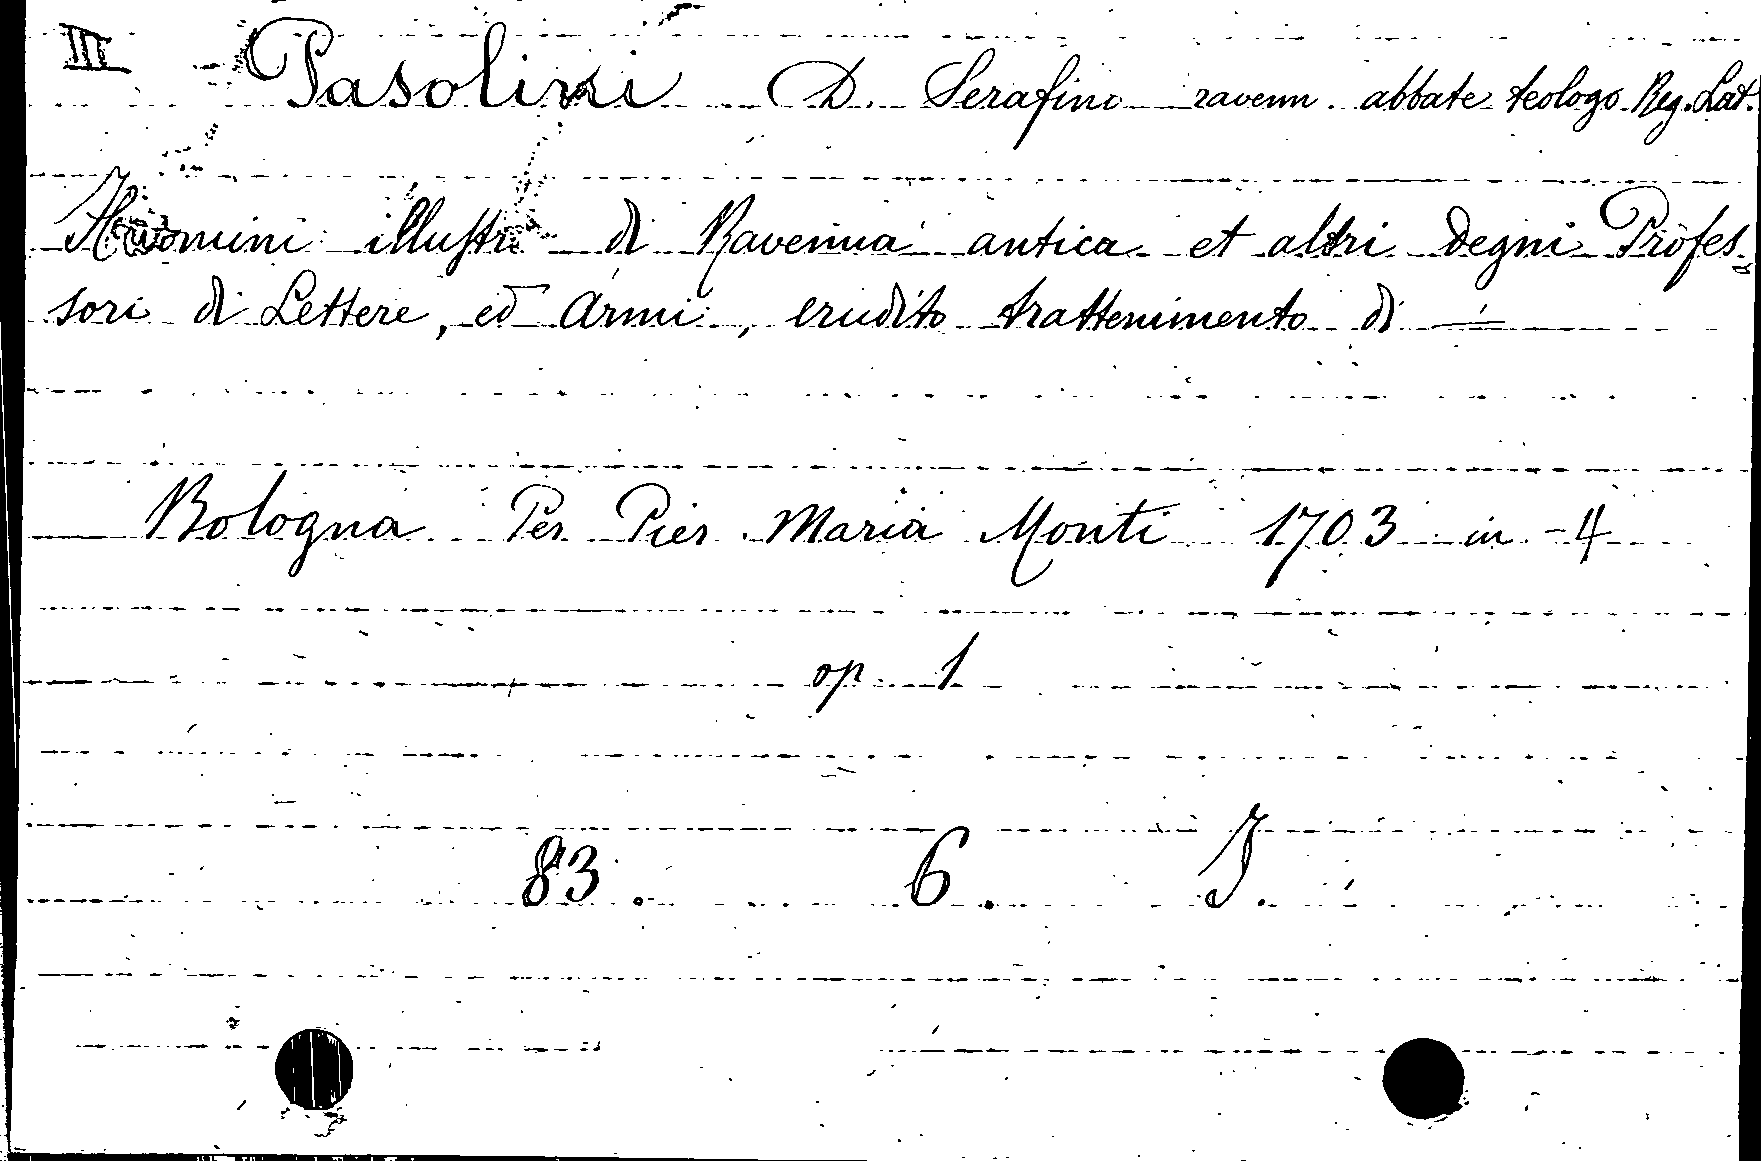 III Pasolini D. Serafino ravenn. abbate teologo Reg. Lat.
Huomini illustri di Ravenna antica et altri degni Profes-
sori di Lettere, ed Armi, erudito trattenimento di —
Bologna Per Pier Maria Monti 1703 in-4
op. 1
83. 6. J.